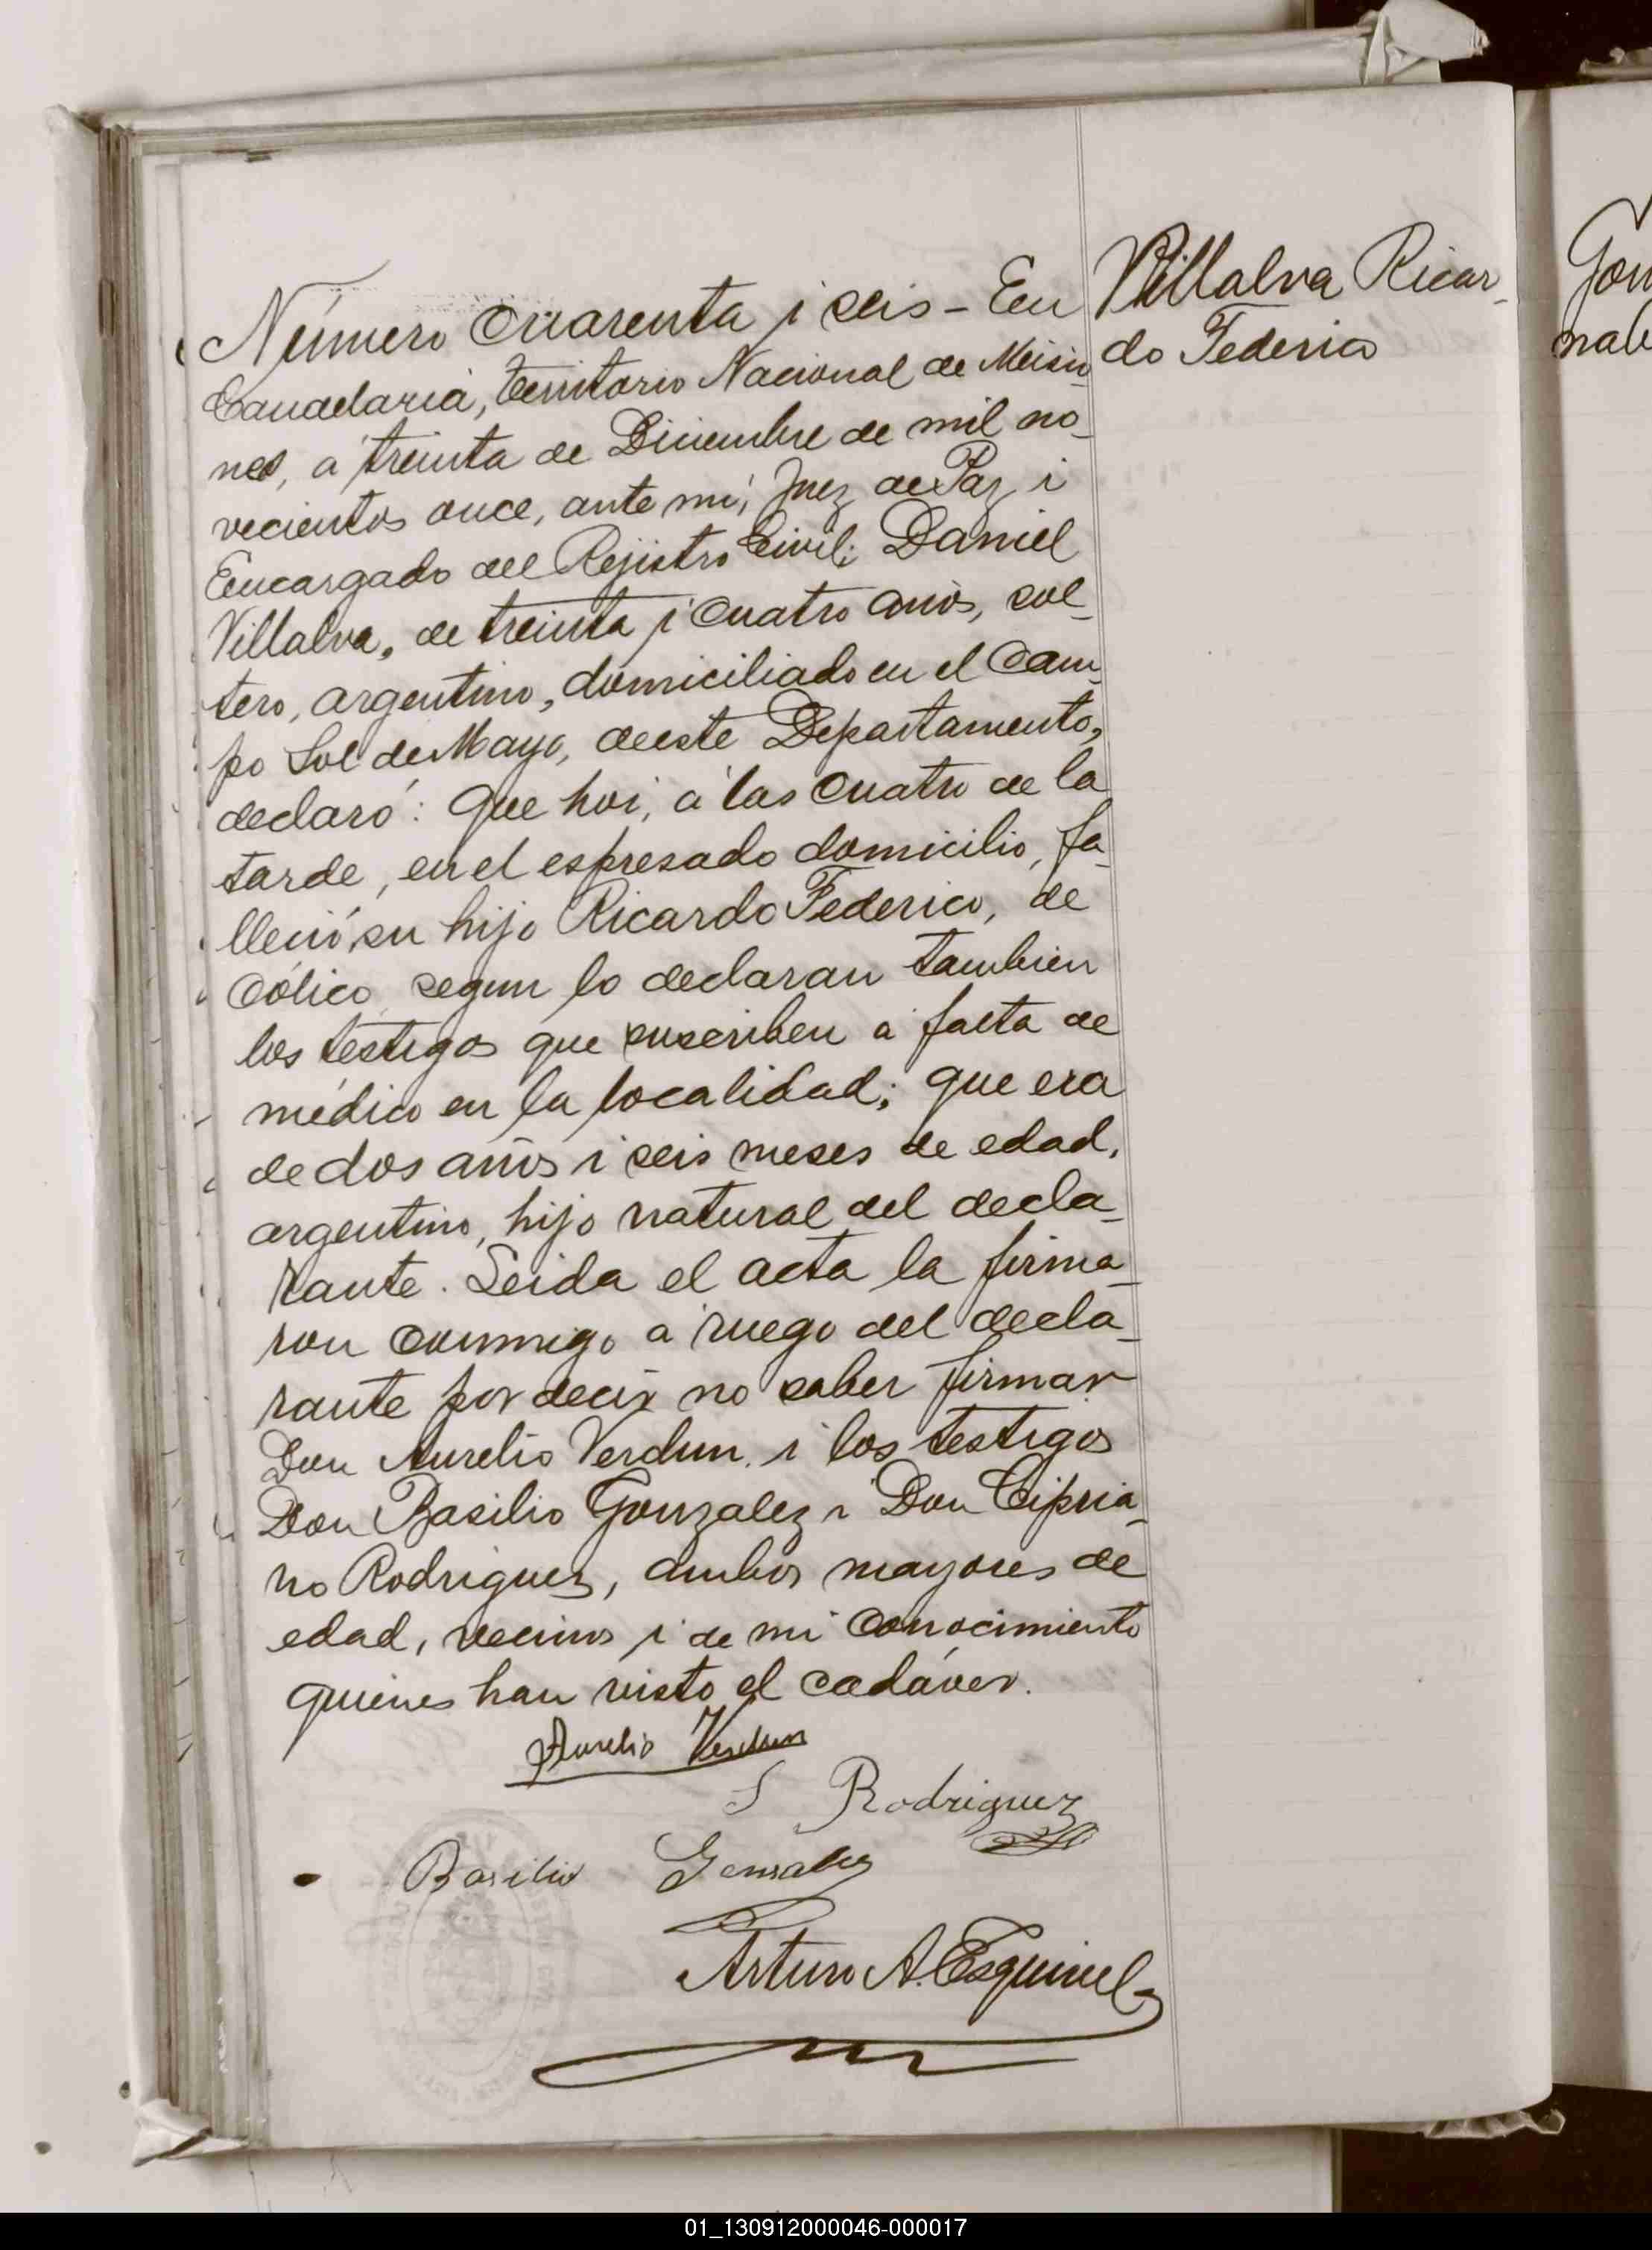 Número Cuarenta i seis - En
Candelaria, territorio Nacional de Misio
nes, á treinta de Diciembre de mil no-
vecientos once, ante mí, Juez de Paz, i
Encargado del Rejistro Civil; Daniel
Villalva, de treinta i cuatro años, sol-
tero, argentino, domiciliado en el Cam-
po Sol de Mayo, de este Departamento,
declaró: Que hoi, á las cuatro de la
tarde, en el espresado domicilio, fa-
lleció su hijo Ricardo Federico, de
Cólico, segun lo declaran tambien
los testigos que suscriben a falta de
médico en la localidad; que era
de dos años i seis meses de edad,
argentino, hijo natural del decla-
rante. Leida el acta la firma-
ron conmigo a ruego del decla-
rante por decir no saber firmar
Don Aurelio Verdun i los testigos
Don Basilio Gonzalez i Don Cipria-
no Rodriguez, ambos mayores de
edad, vecinos i de mi conocimiento
quienes han visto el cadáver.
Aurelio Verdun
Rodriguez
Basilio Gonzalez
Arturo A. Esquivel
Villalva Ricar-
do Federico
Gon
nab
01_130912000046-000017